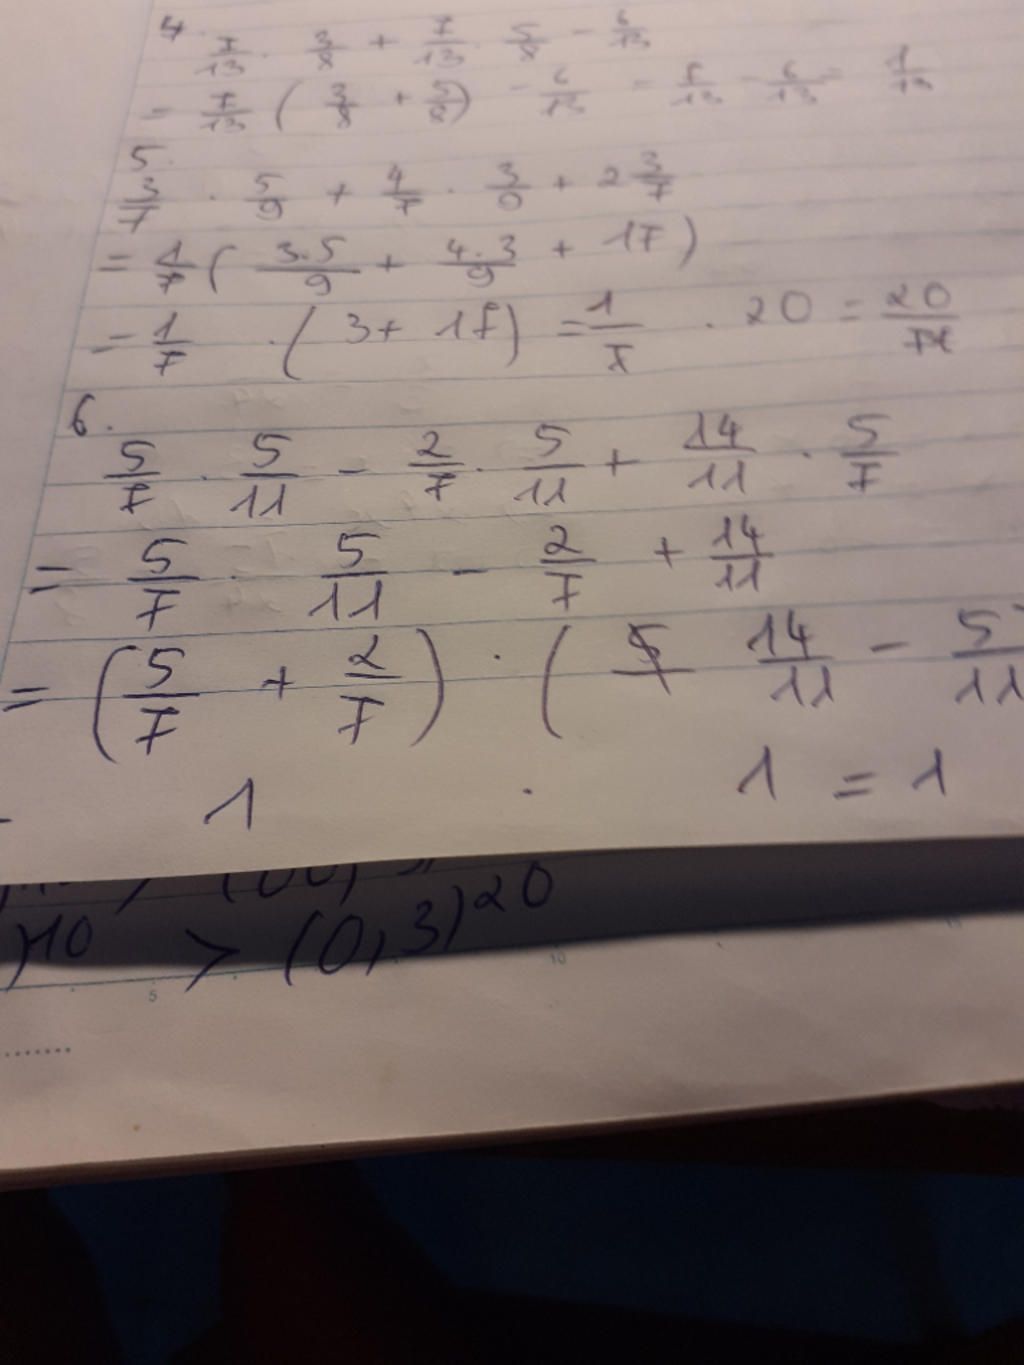 4.
7/13 · 3/8 + 7/13 · 5/8 - 6/13
= 7/13 ( 3/8 + 5/8 ) - 6/13 = 7/13 - 6/13 = 1/13
5.
3/7 · 5/9 + 4/7 · 3/9 + 2 3/7
= 1/7 ( 3.5/9 + 4.3/9 + 17 )
= 1/7 · ( 3 + 17 ) = 1/7 · 20 = 20/7
6.
5/7 · 5/11 - 2/7 · 5/11 + 14/11 · 5/7
= 5/7 · 5/11 - 2/7 + 14/11
= ( 5/7 + 2/7 ) · ( 14/11 - 5/11
1 · 1 = 1
)10 > (0,3)20
5 10